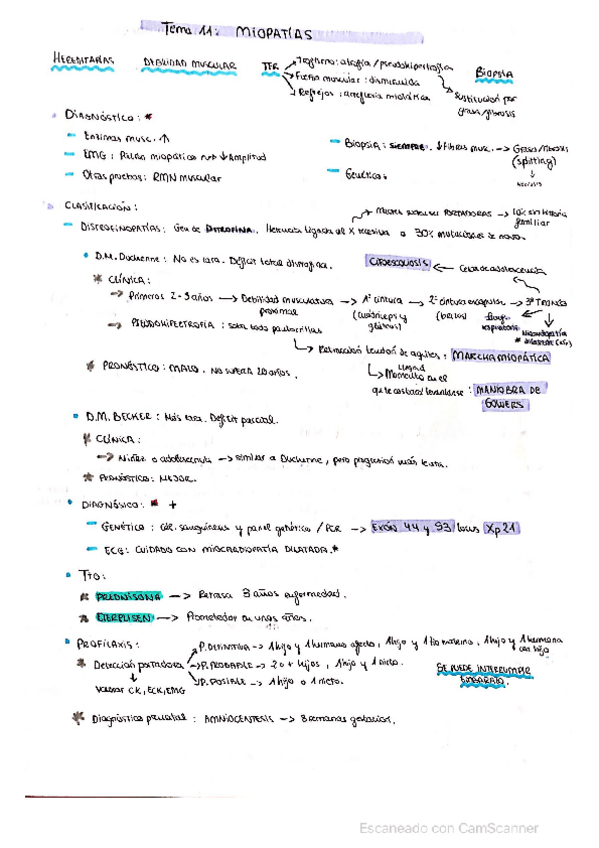 Tema 11: MIOPATÍAS
HEREDITARIAS DEBILIDAD MUSCULAR → Trofismo: atrofia / pseudohipertrofia
→ Fuerza muscular: disminuida BIOPSIA
→ Reflejos: arreflexia miotática Sustitución por grasa/fibrosis
DIAGNÓSTICO: *
- Enzimas musc. ↑
- Biopsia: SIEMPRE. ↓ fibras musc. → Grasa/fibrosis (splitting)
- EMG: Patrón miopático ↓ Amplitud
- Otras pruebas: RMN muscular
- Genética:
CLASIFICACIÓN:
PORTADORAS → 1/3 sin historia familiar
- DISTROFINOPATÍAS: Gen de DISTROFINA. Herencia ligada al X recesiva o 30% mutaciones de novo.
D.M. Duchenne: No es rara. Déficit total distrofina. CIFOESCOLIOSIS ← Cerca de adolescencia
* CLÍNICA:
→ Primeros 2-3 años → Debilidad musculatura proximal → 1º cintura (cuádriceps y glúteos) → 2º cintura escapular (brazos) → 3º TRONCO
→ PSEUDOHIPERTROFIA: sobre todo pantorrillas
↳ Retracción tendón de aquiles, MARCHA MIOPÁTICA
↳ Llegará Momento en el que le costará levantarse: MANIOBRA DE GOWERS
* PRONÓSTICO: MALO. No supera 20 años.
D.M. BECKER: Más rara. Déficit parcial.
* CLÍNICA:
→ Niñez o adolescencia → similar a Duchenne, pero progresión más lenta.
* PRONÓSTICO: MEJOR.
DIAGNÓSICO: * +
- GENÉTICO: cél. sanguíneas y panel genético / PCR → EXÓN 44 y 93 locus Xp21
- ECG: CUIDADO CON MIOCARDIOPATÍA DILATADA. *
TTO:
* PREDNISONA → Retrasa 3 años enfermedad.
* ETEPLISEN → Prometedor en unos años.
PROFILAXIS:
→ P. DEFINITIVA → 1 hijo y 1 hermano afecto, 1 hijo y 1 tío materno, 1 hijo y 1 hermana con hijo
* Detección portadora → P. PROBABLE → 2 o + hijos, 1 hijo y 1 nieto.
→ P. POSIBLE → 1 hijo o 1 nieto.
SE PUEDE INTERRUMPIR EMBARAZO.
Valorar CK, ECK, EMG
* Diagnóstico prenatal: AMNIOCENTESIS → 8 semanas gestación.
Escaneado con CamScanner